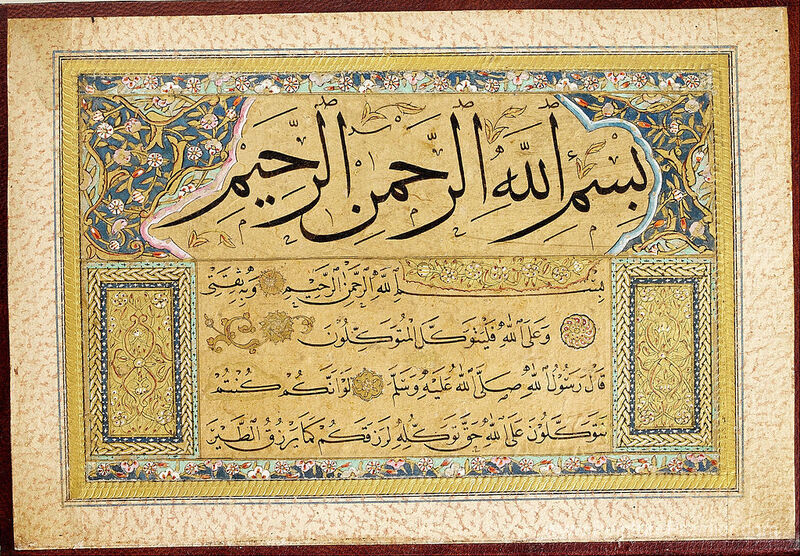 بِسْمِ اللّٰهِ الرَّحْمٰنِ الرَّحِيمِ
بِسْمِ اللّٰهِ الرَّحْمٰنِ الرَّحِيمِ وَبِهِ ثِقَتِي
وَعَلَى اللّٰهِ فَلْيَتَوَكَّلِ الْمُتَوَكِّلُونَ
قَالَ رَسُولُ اللّٰهِ صَلَّى اللّٰهُ عَلَيْهِ وَسَلَّمَ لَوْ أَنَّكُمْ كُنْتُمْ
تَتَوَكَّلُونَ عَلَى اللّٰهِ حَقَّ تَوَكُّلِهِ لَرَزَقَكُمْ كَمَا يَرْزُقُ الطَّيْرَ